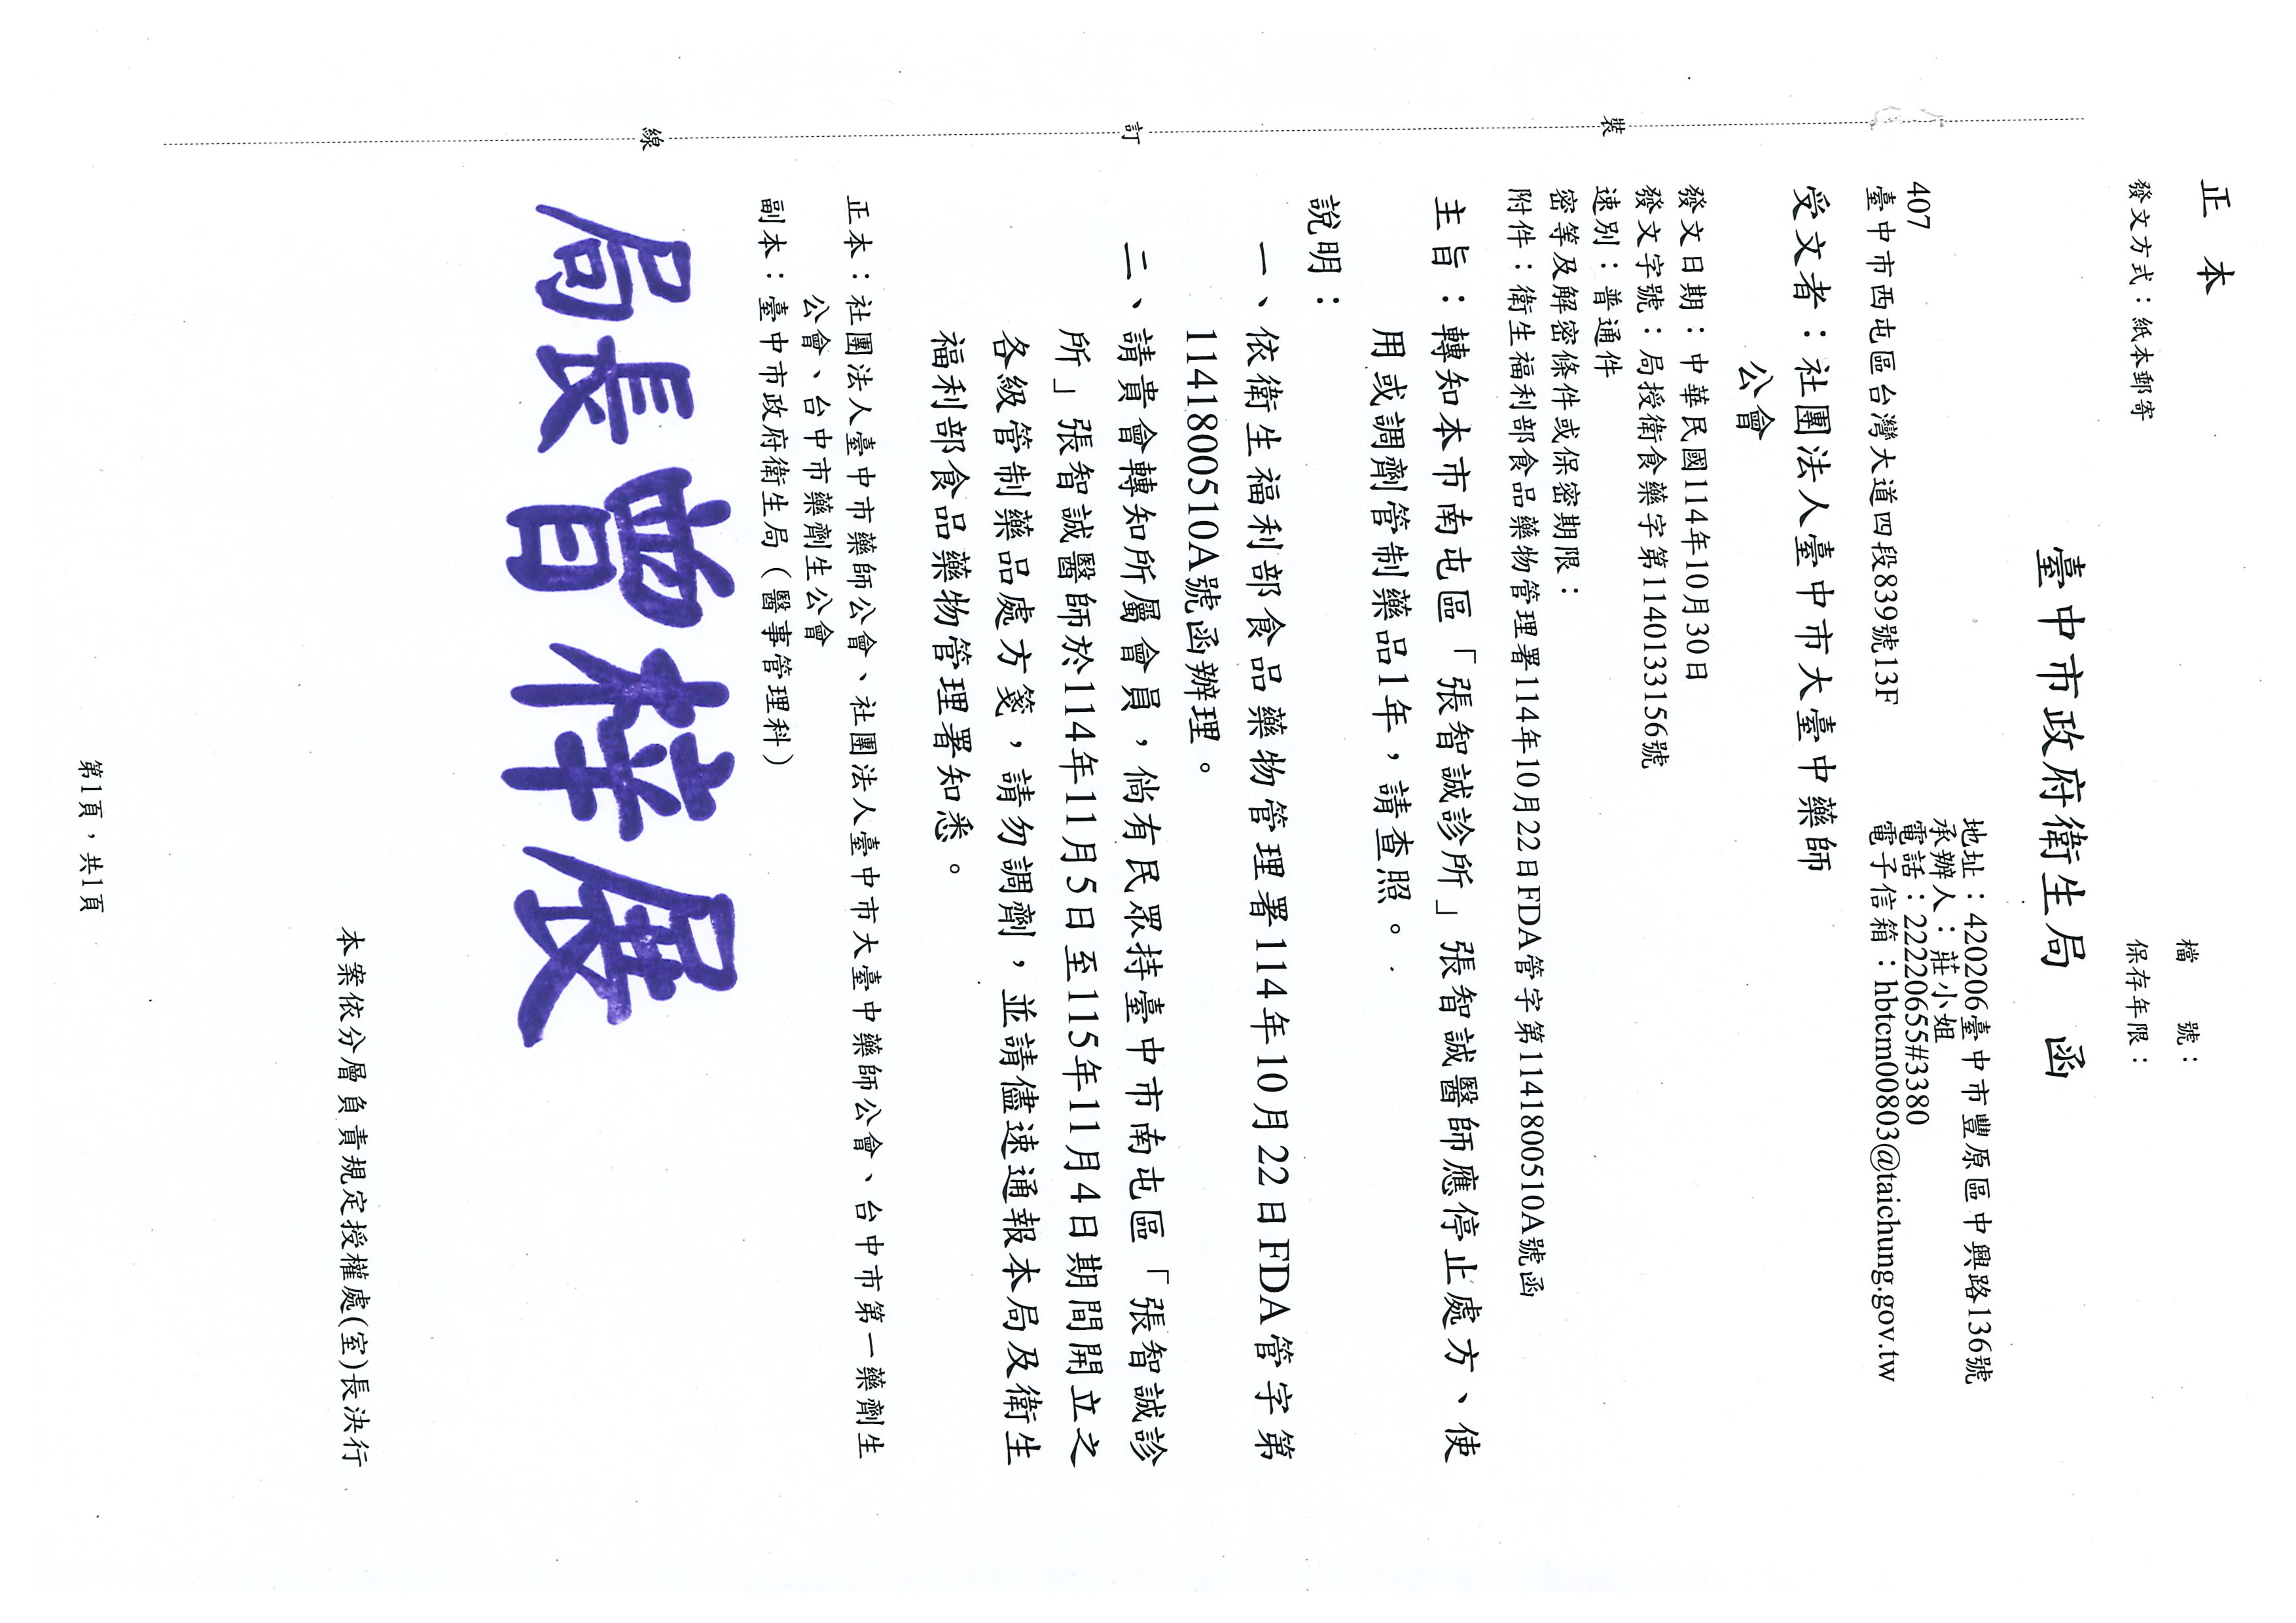 正本
檔　　號：
保存年限：
發文方式：紙本郵寄
臺中市政府衛生局　函
地址：420206臺中市豐原區中興路136號
承辦人：莊小姐
電話：22220655#3380
電子信箱：hbtcm00803@taichung.gov.tw
407
臺中市西屯區台灣大道四段839號13F
受文者：社團法人臺中市大臺中藥師
公會
發文日期：中華民國114年10月30日
發文字號：局授衛食藥字第1140133156號
速別：普通件
密等及解密條件或保密期限：
附件：衛生福利部食品藥物管理署114年10月22日FDA管字第1141800510A號函
主旨：轉知本市南屯區「張智誠診所」張智誠醫師應停止處方、使
用或調劑管制藥品1年，請查照。
說明：
一、依衛生福利部食品藥物管理署114年10月22日FDA管字第
1141800510A號函辦理。
二、請貴會轉知所屬會員，倘有民眾持臺中市南屯區「張智誠診
所」張智誠醫師於114年11月5日至115年11月4日期間開立之
各級管制藥品處方箋，請勿調劑，並請儘速通報本局及衛生
福利部食品藥物管理署知悉。
正本：社團法人臺中市藥師公會、社團法人臺中市大臺中藥師公會、台中市第一藥劑生
公會、台中市藥劑生公會
副本：臺中市政府衛生局（醫事管理科）
局長曾梓展
本案依分層負責規定授權處(室)長決行
第1頁，共1頁
裝
訂
線